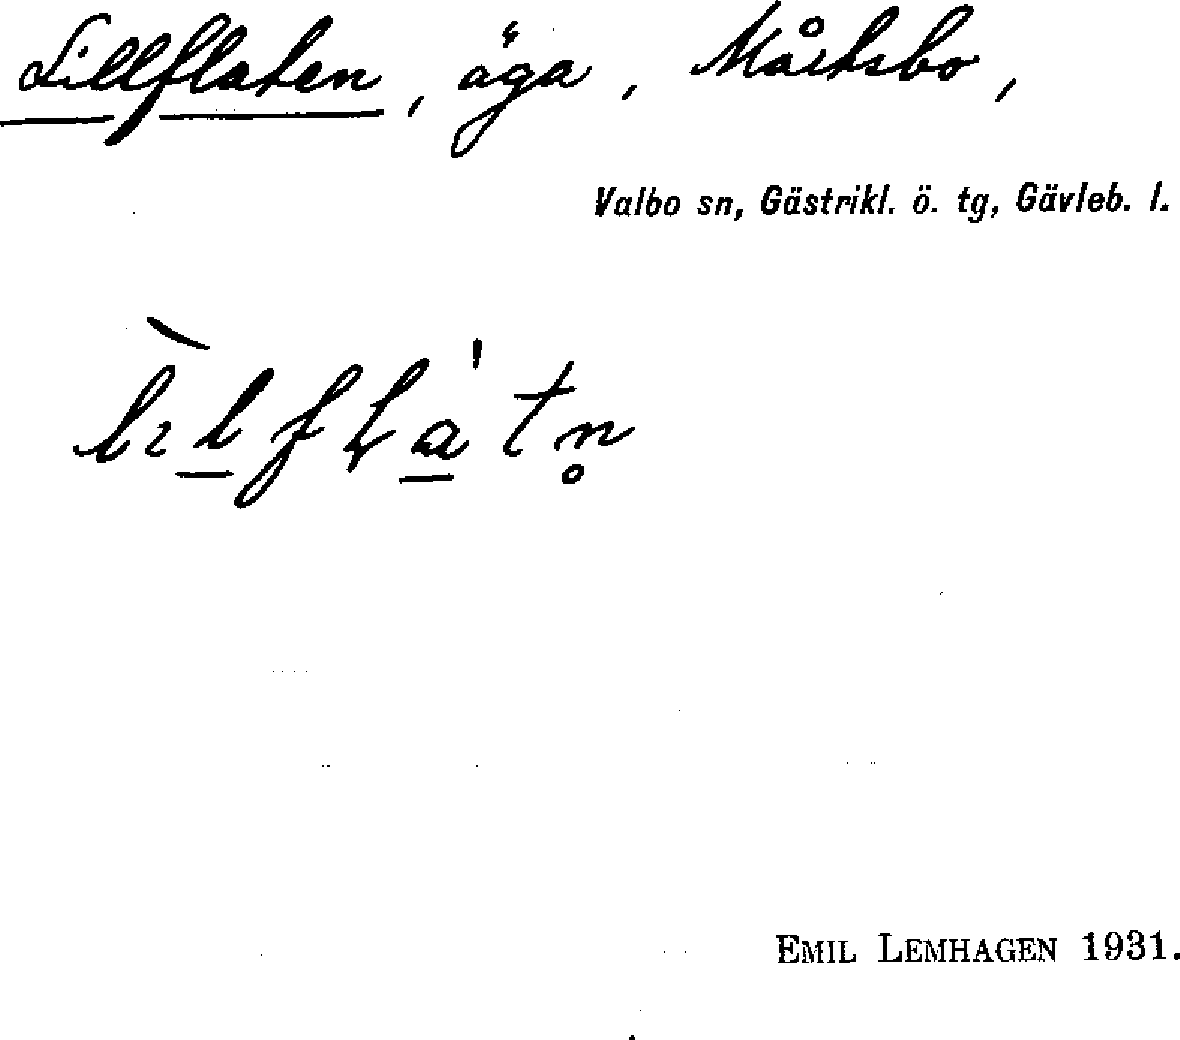 Lillflaten, äga, Mårtsbo,
Valbo sn, Gästrikl. ö. tg, Gävleb. l.
EMIL LEMHAGEN 1931.